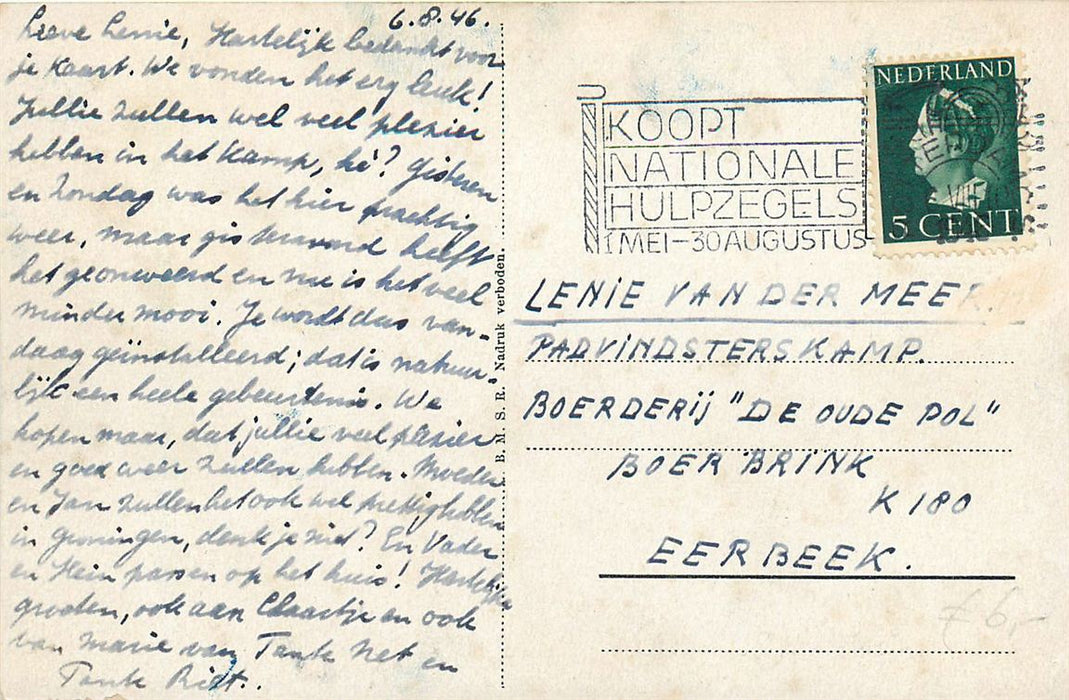 6.8.46.
Lieve Lenie, Hartelijk bedankt voor
je kaart. We vonden het erg leuk!
Jullie zullen wel veel plezier
hebben in het kamp, hè? Gisteren
en Zondag was het hier prachtig
weer, maar gisteravond heeft
het geonweerd en nu is het veel
minder mooi. Je wordt dus van-
daag geïnstalleerd; dat is natuur-
lijk een heele gebeurtenis. We
hopen maar, dat jullie veel plezier
en goed weer zullen hebben. Moeder
en Jan zullen het ook wel prettig hebben
in Groningen, denk je niet? En Vader
en Hein passen op het huis! Hartelijke
groeten, ook aan Claartje en ook
van Marie van Tante Net en
Tante Riet..
B. M. S. R. Nadruk verboden.
NEDERLAND
5 CENT
KOOPT
NATIONALE
HULPZEGELS
1 MEI-30 AUGUSTUS
LENIE VAN DER MEER.
PADVINDSTERSKAMP.
BOERDERIJ "DE OUDE POL"
BOER BRINK
K 180
EERBEEK.
€6,-